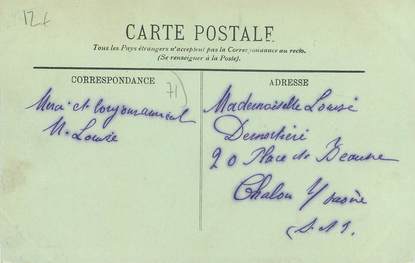 12 f
CARTE POSTALE
Tous les Pays étrangers n'acceptent pas la Correspondance au recto.
(Se renseigner à la Poste).
CORRESPONDANCE
71
ADRESSE
Merci et
N. Louise
Mademoiselle Louise
20 Place de Beaune
Chalon s/ Saône
S. & L.